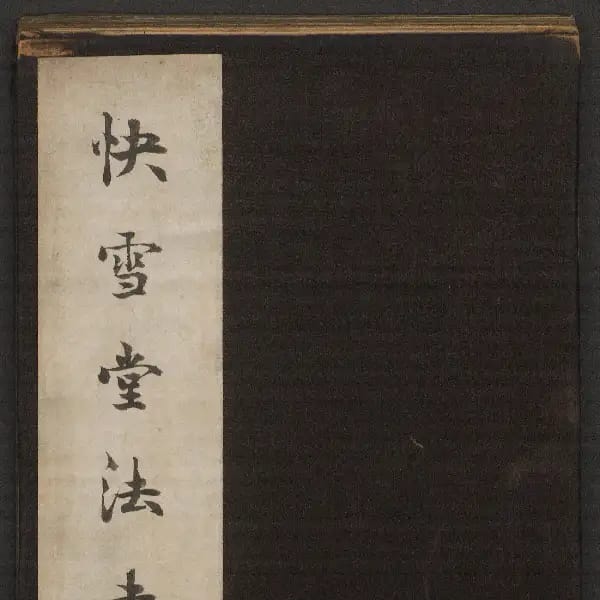 快雪堂法書